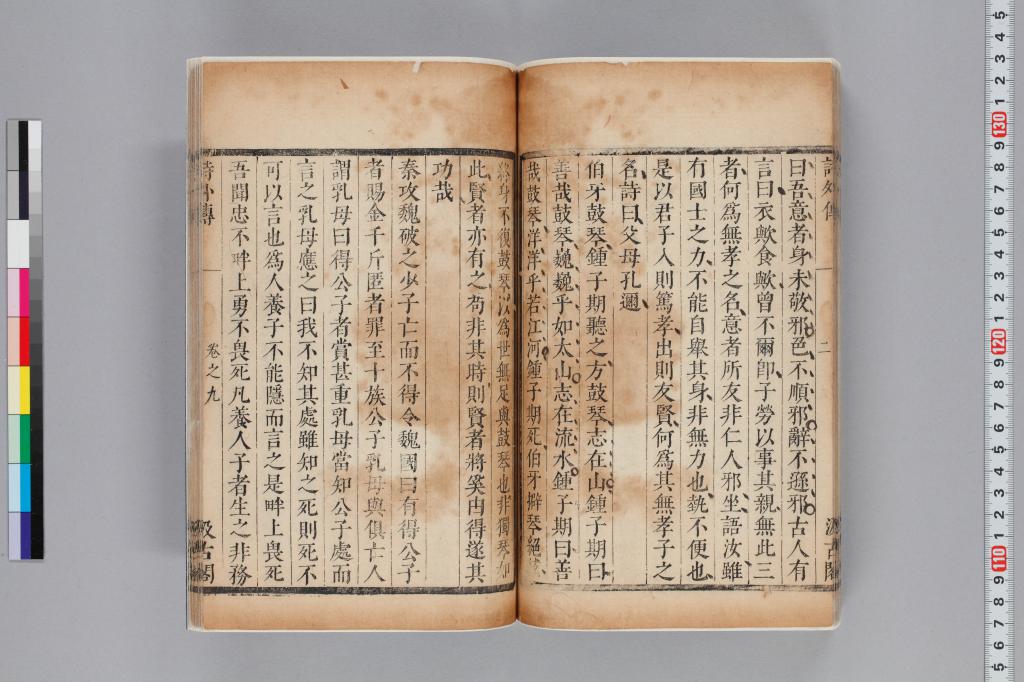 曰吾意者身未敬邪色不順邪辭不遜邪古人有
言曰衣歟食歟曾不爾卽子勞以事其親無此三
者何爲無孝之名意者所友非仁人邪坐語汝雖
有國士之力不能自舉其身非無力也勢不便也
是以君子入則篤孝出則友賢何爲其無孝子之
名詩曰父母孔邇
伯牙鼓琴鍾子期聽之方鼓琴志在山鍾子期曰
善哉鼓琴巍巍乎如太山志在流水鍾子期曰善
哉鼓琴洋洋乎若江河鍾子期死伯牙擗琴絕
身不復鼓琴以爲世無足與鼓琴也非獨琴如
此賢者亦有之苟非其時則賢者將奚由得遂其
功哉
秦攻魏破之少子亡而不得令魏國曰有得公子
者賜金千斤匿者罪至十族公子乳母與俱亡人
謂乳母曰得公子者賞甚重乳母當知公子處而
言之乳母應之曰我不知其處雖知之死則死不
可以言也爲人養子不能隱而言之是畔上畏死
吾聞忠不畔上勇不畏死凡養人子者生之非務
詩外傳
卷之九
汲古閣